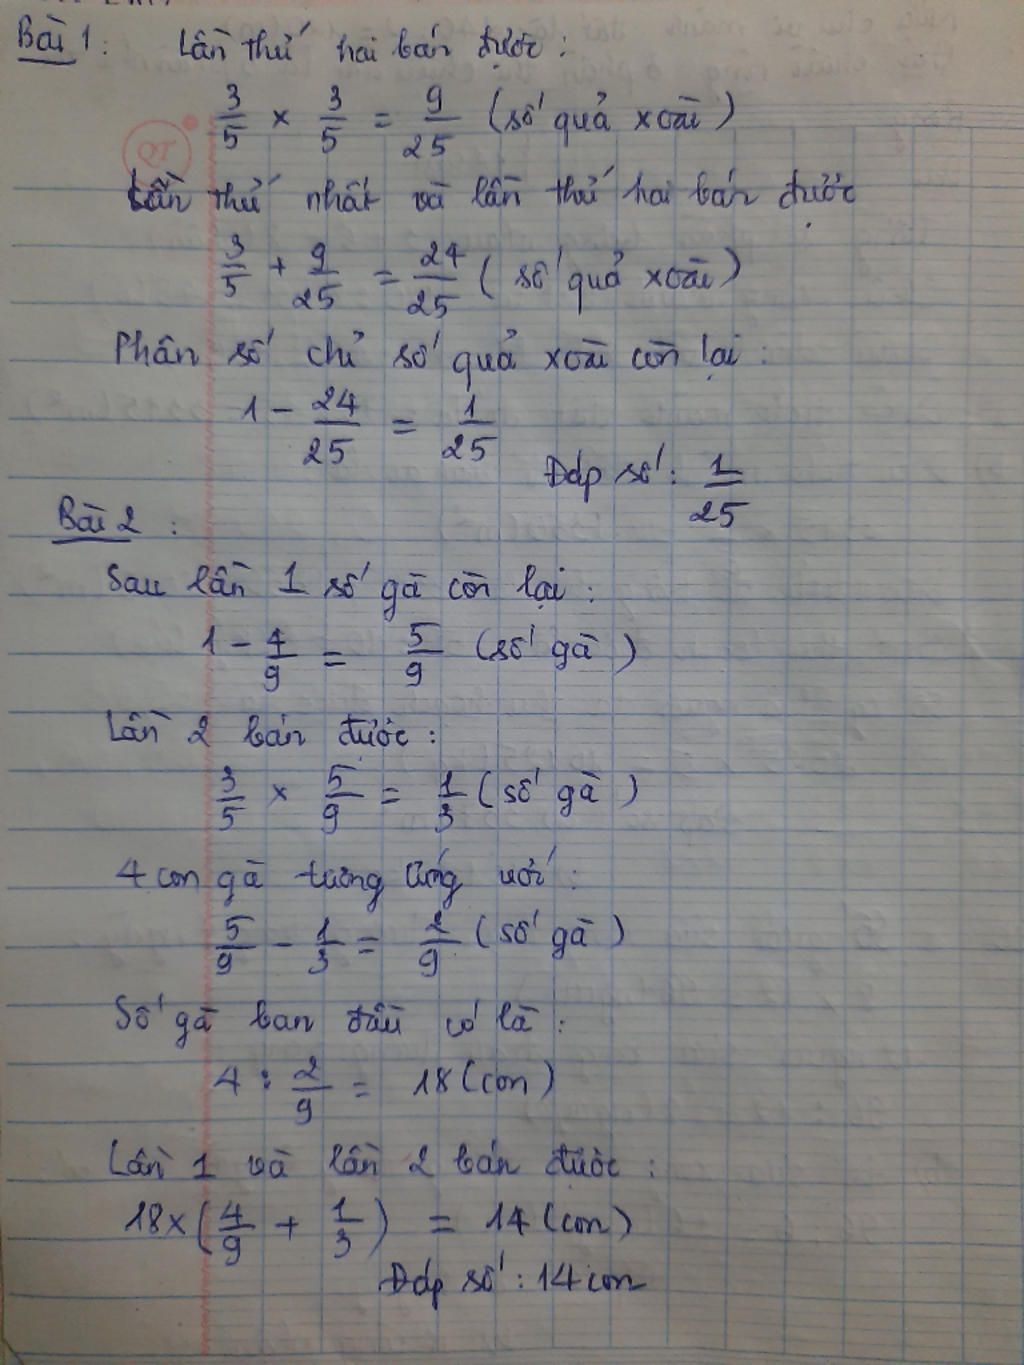 Bài 1: Lần thứ hai bán được:
3/5 × 3/5 = 9/25 (số quả xoài)
Lần thứ nhất và lần thứ hai bán được
3/5 + 9/25 = 24/25 (số quả xoài)
Phân số chỉ số quả xoài còn lại:
1 - 24/25 = 1/25
Đáp số: 1/25
Bài 2:
Sau lần 1 số gà còn lại:
1 - 4/9 = 5/9 (số gà)
Lần 2 bán được:
3/5 × 5/9 = 1/3 (số gà)
4 con gà tương ứng với:
5/9 - 1/3 = 2/9 (số gà)
Số gà ban đầu có là:
4 : 2/9 = 18 (con)
Lần 1 và lần 2 bán được:
18 × (4/9 + 1/3) = 14 (con)
Đáp số: 14 con